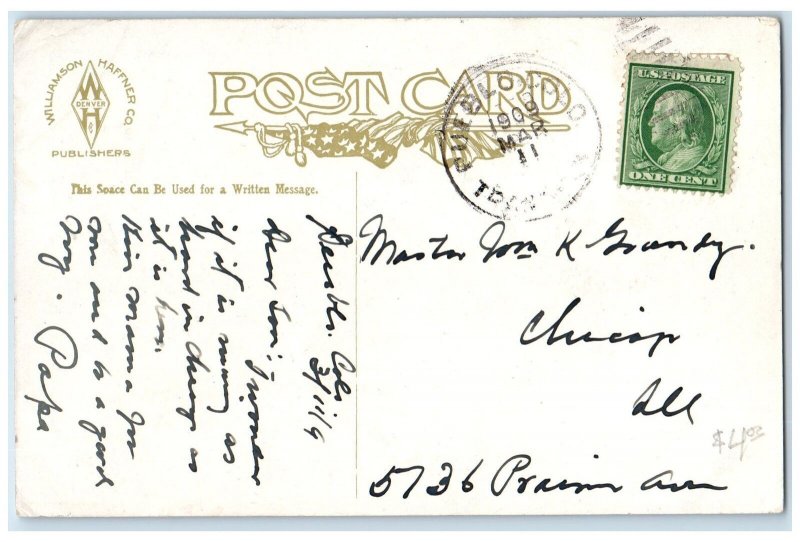 WILLIAMSON HAFFNER CO.
W
DENVER
H
Co
PUBLISHERS
POST CARD
PUEBLO, COLO.
1909
MAR
11
U.S. POSTAGE
ONE CENT
This Space Can Be Used for a Written Message.
Pueblo. Colo
3/11/9
Dear Son: I wonder
if it is as
hard in Chicago as
it is here.
Kiss Mama for
me and be a good
boy. Papa
Master Wm K Grundy.
Chicago
Ill
5736 Prairie Ave
$4.00